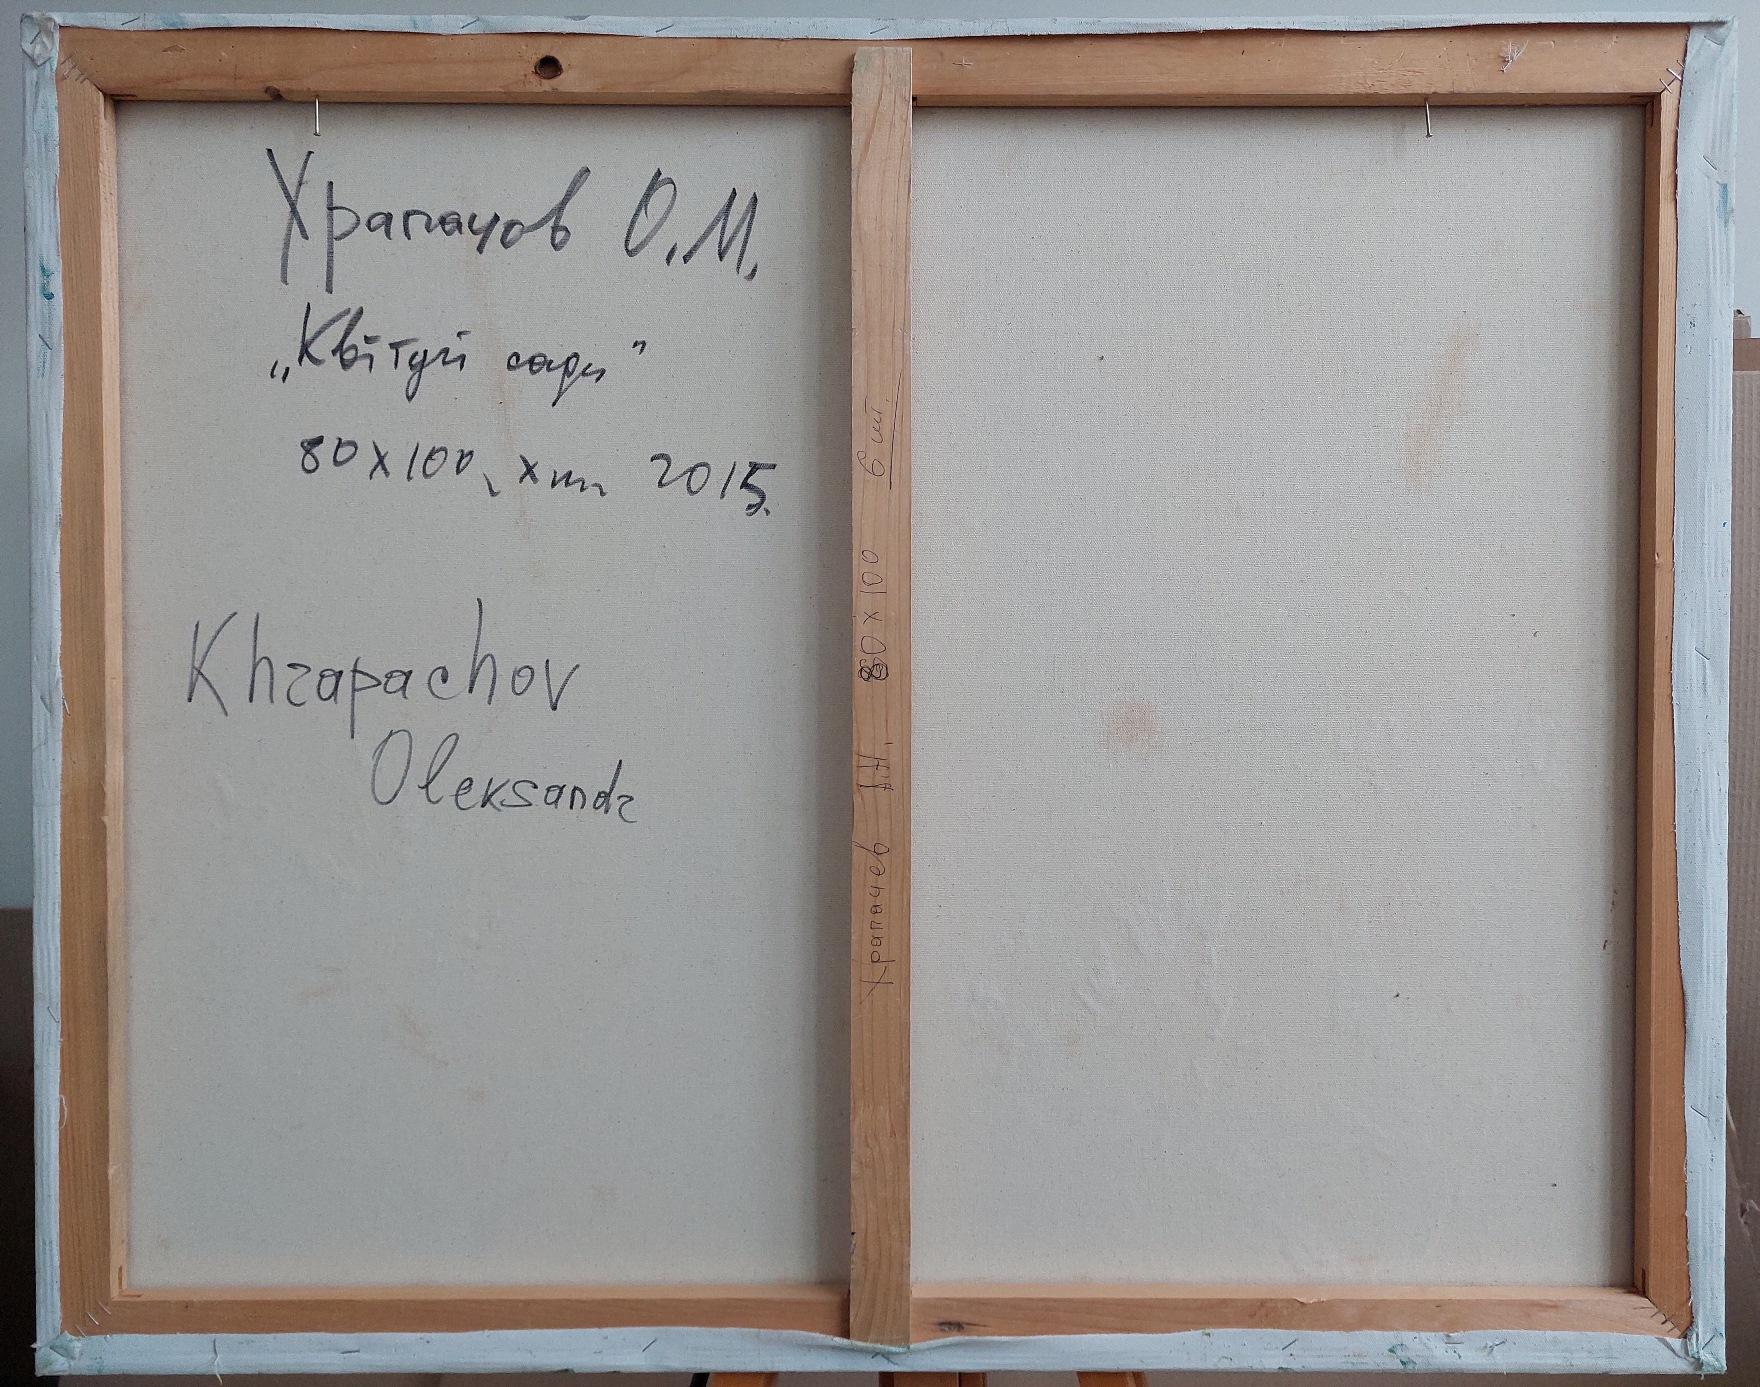 Храпачов О.М.
„Квітучі сади"
80х100, х.м 2015.
Khrapachov
Oleksandr
Храпачев А.Н. 80 х 100 6 шт.